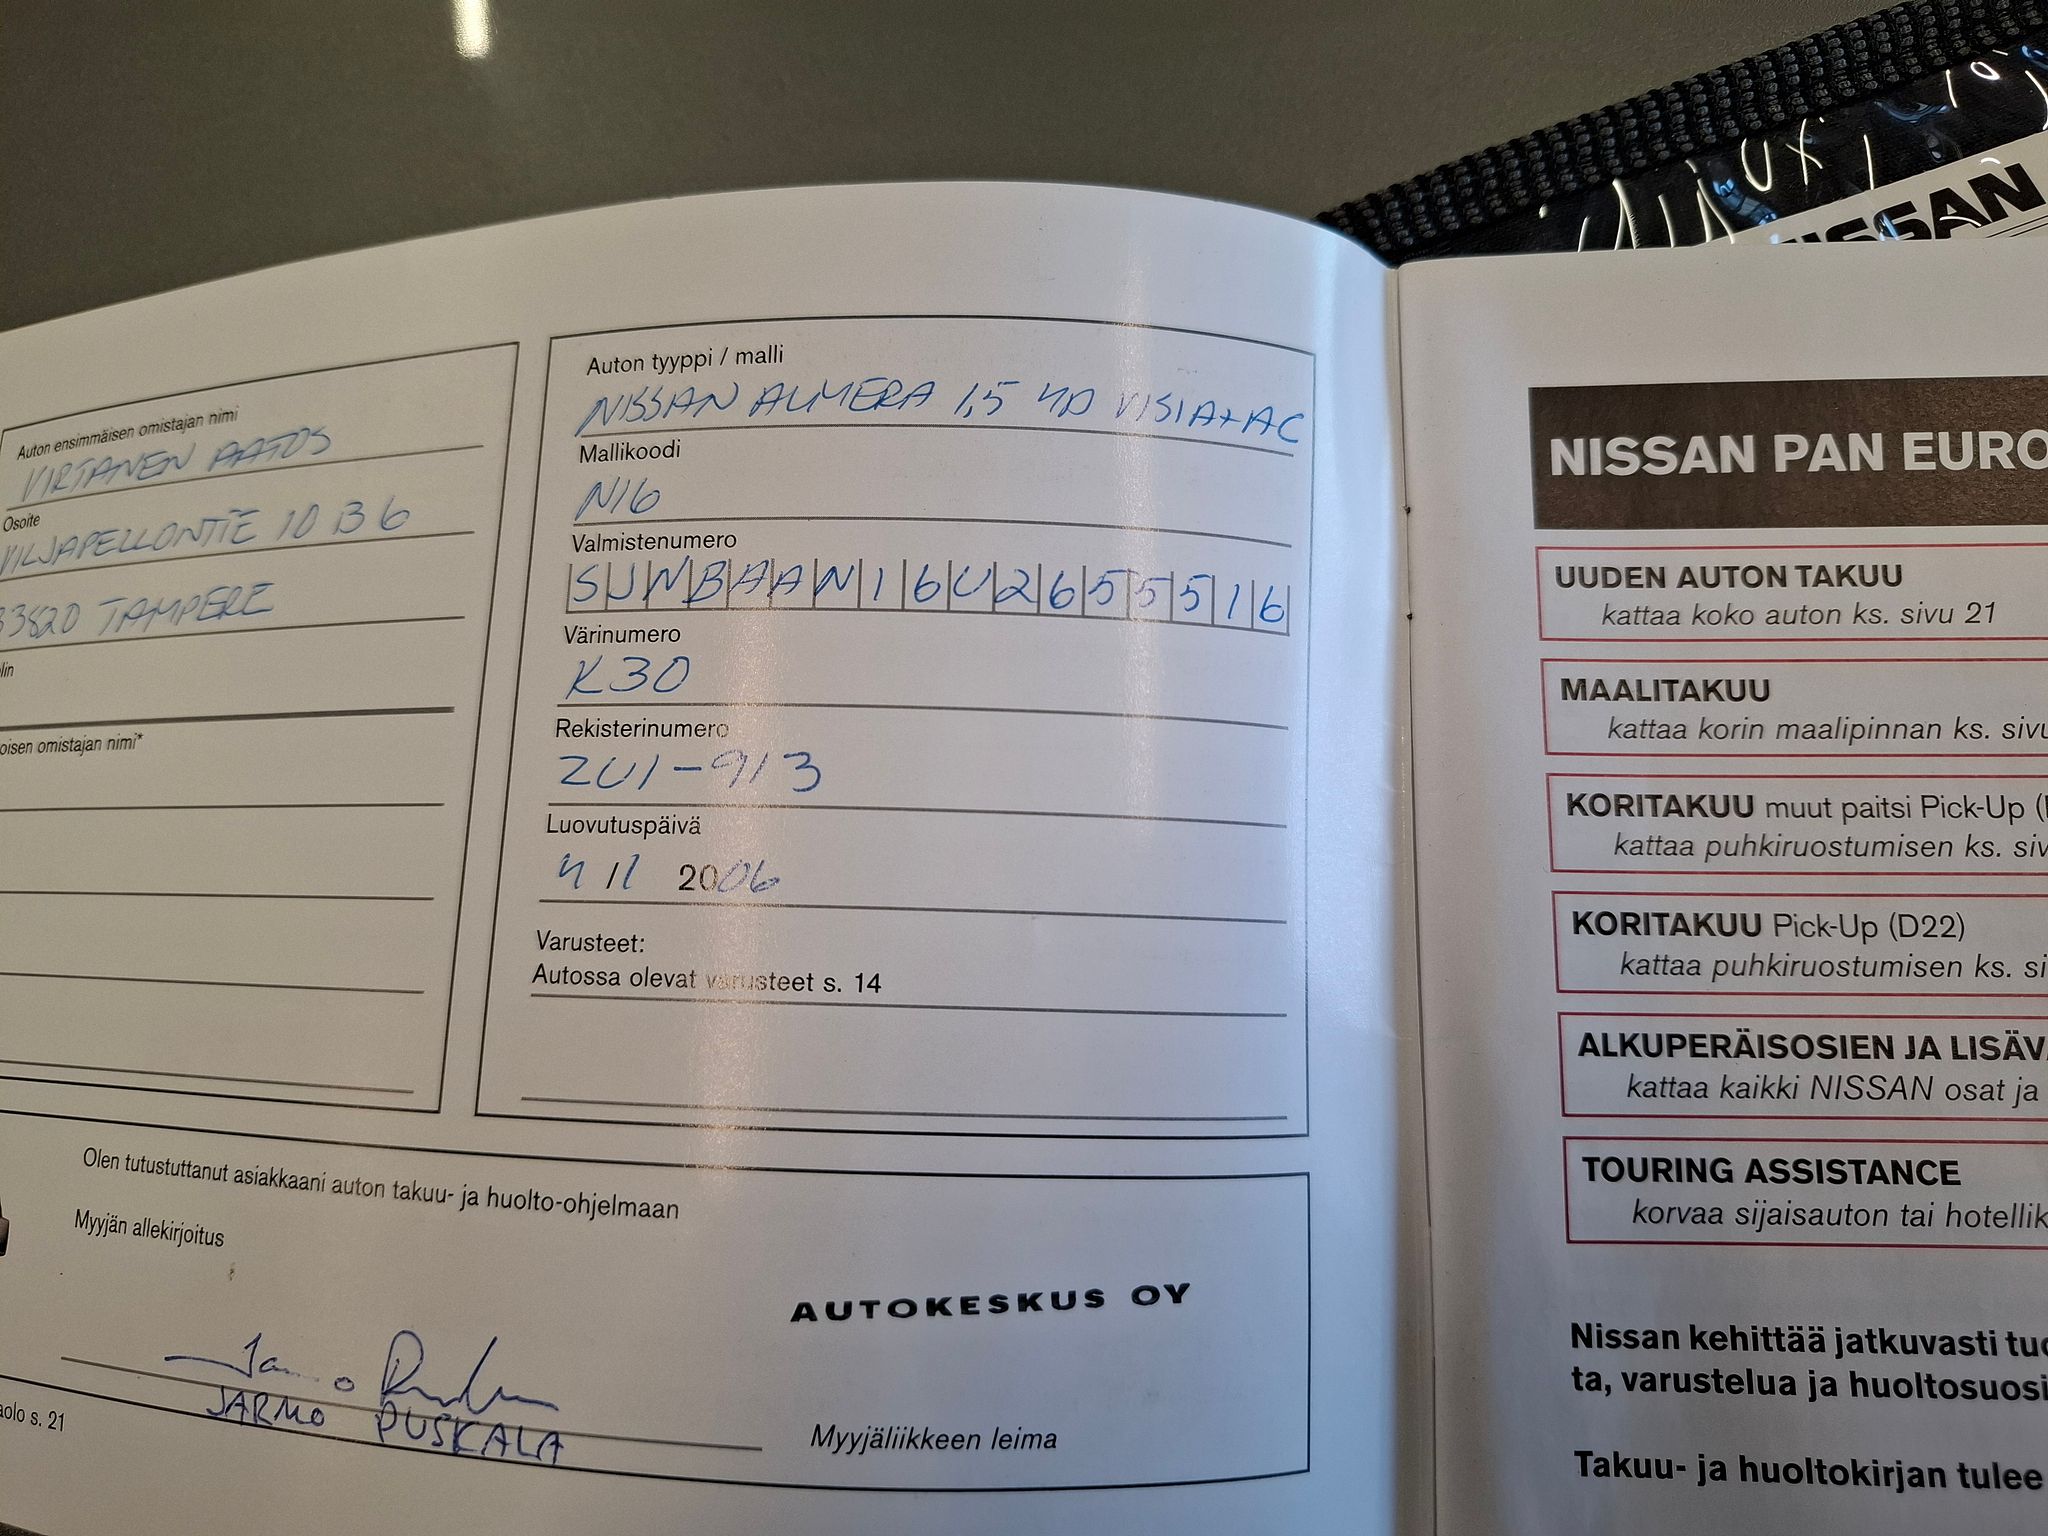 NISSAN
Auton ensimmäisen omistajan nimi
VIRTANEN AATOS
Osoite
VILJAPELLONTIE 10 B 6
33820 TAMPERE
oisen omistajan nimi*
Auton tyyppi / malli
NISSAN ALMERA 1,5 4D VISIA+AC
Mallikoodi
N16
Valmistenumero
SJNBAAN16U2655516
Värinumero
K30
Rekisterinumero
ZUI-913
Luovutuspäivä
4 / 1 2006
Varusteet:
Autossa olevat varusteet s. 14
Olen tutustuttanut asiakkaani auton takuu- ja huolto-ohjelmaan
Myyjän allekirjoitus
JARMO PUSKALA
AUTOKESKUS OY
Myyjäliikkeen leima
s. 21
NISSAN PAN EURO
UUDEN AUTON TAKUU
kattaa koko auton ks. sivu 21
MAALITAKUU
kattaa korin maalipinnan ks. sivu
KORITAKUU muut paitsi Pick-Up (
kattaa puhkiruostumisen ks. siv
KORITAKUU Pick-Up (D22)
kattaa puhkiruostumisen ks. si
ALKUPERÄISOSIEN JA LISÄVA
kattaa kaikki NISSAN osat ja
TOURING ASSISTANCE
korvaa sijaisauton tai hotellik
Nissan kehittää jatkuvasti tuo
ta, varustelua ja huoltosuosi
Takuu- ja huoltokirjan tulee